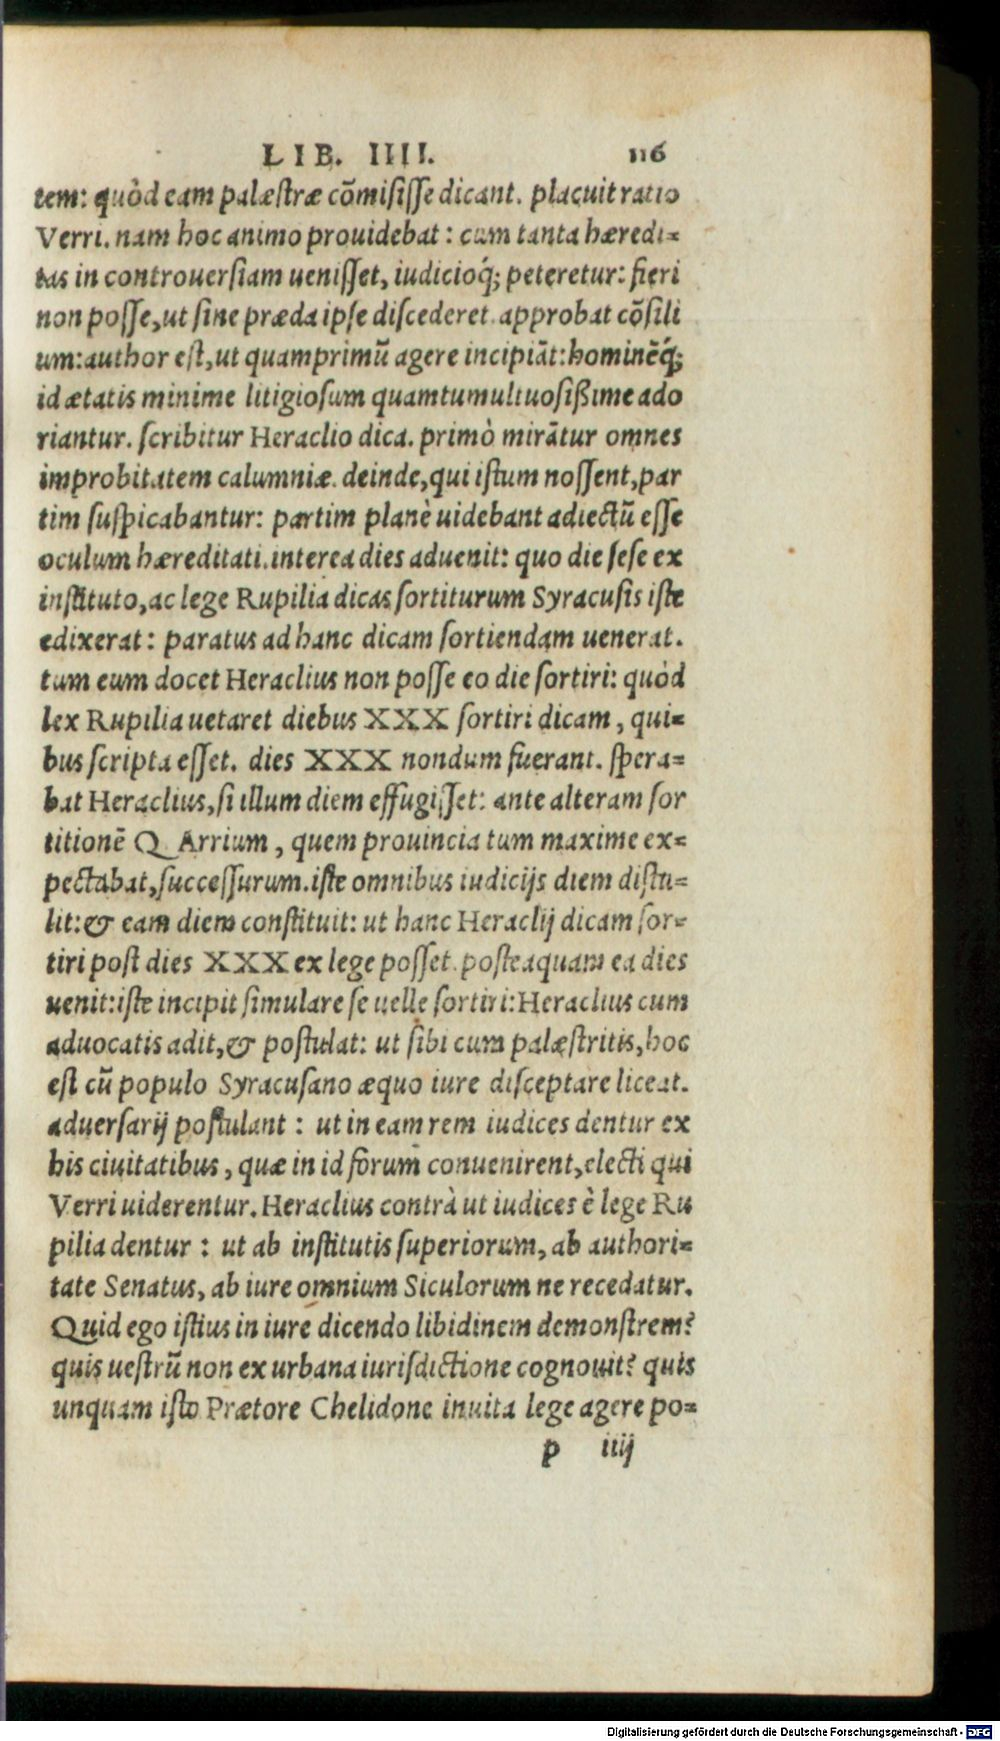 LIB. IIII. 116
tem: quòd eam palæstræ cõmisisse dicant. placuit ratio
Verri. nam hoc animo prouidebat: cum tanta hæredi-
tas in controuersiam uenisset, iudicioq́; peteretur: fieri
non posse, ut sine præda ipse discederet. approbat cõsili
um: author est, ut quamprimũ agere incipiãt: hominẽq́;
id ætatis minime litigiosum quam tumultuosißime ado
riantur. scribitur Heraclio dica. primò mirãtur omnes
improbitatem calumniæ. deinde, qui istum nossent, par
tim suspicabantur: partim planè uidebant adiectũ esse
oculum hæreditati. interea dies aduenit: quo die sese ex
instituto, ac lege Rupilia dicas sortiturum Syracusis iste
edixerat: paratus ad hanc dicam sortiendam uenerat.
tum eum docet Heraclius non posse eo die sortiri: quòd
lex Rupilia uetaret diebus XXX sortiri dicam, qui-
bus scripta esset. dies XXX nondum fuerant. spera-
bat Heraclius, si illum diem effugisset: ante alteram sor
titionẽ Q. Arrium, quem prouincia tum maxime ex-
pectabat, successurum. iste omnibus iudicijs diem distu-
lit: & eam diem constituit: ut hanc Heraclij dicam sor-
tiri post dies XXX ex lege posset. posteaquam ea dies
uenit: iste incipit simulare se uelle sortiri: Heraclius cum
aduocatis adit, & postulat: ut sibi cum palæstritis, hoc
est cũ populo Syracusano æquo iure disceptare liceat.
aduersarij postulant: ut in eam rem iudices dentur ex
his ciuitatibus, quæ in id forum conuenirent, electi qui
Verri uiderentur. Heraclius contrà ut iudices è lege Ru
pilia dentur: ut ab institutis superiorum, ab authori-
tate Senatus, ab iure omnium Siculorum ne recedatur.
Quid ego istius in iure dicendo libidinem demonstrem?
quis uestrũ non ex urbana iurisdictione cognouit? quis
unquam isto Prætore Chelidone inuita lege agere po-
p iiij
Digitalisierung gefördert durch die Deutsche Forschungsgemeinschaft - DFG